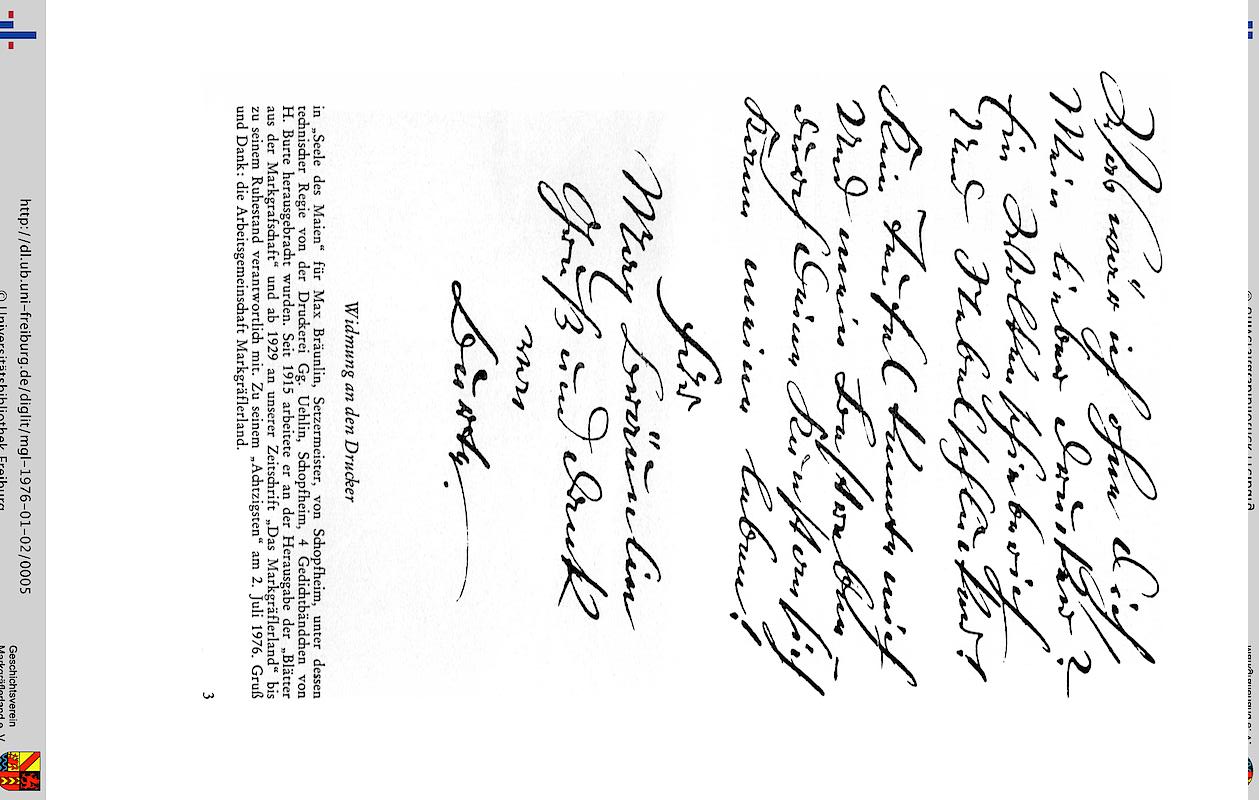 wär ich ohne Dich
Mein lieber Drucker?
Ein Wolkenschieberich
Und Nebelschlucker!
Kein Teufel kennte mich
Und mein
Durch Deine
meine leben!
Für
Max Bräunlin
Gruß und Dank
von
Burte.
Widmung an den Drucker
in „Seele des Maien“ für Max Bräunlin, Setzermeister, von Schopfheim, unter dessen
technischer Regie von der Druckerei Gg. Uehlin, Schopfheim, 4 Gedichtbändchen von
H. Burte herausgebracht wurden. Seit 1915 arbeitete er an der Herausgabe der „Blätter
aus der Markgrafschaft“ und ab 1929 an unserer Zeitschrift „Das Markgräflerland“ bis
zu seinem Ruhestand verantwortlich mit. Zu seinem „Achtzigsten“ am 2. Juli 1976. Gruß
und Dank: die Arbeitsgemeinschaft Markgräflerland.
3
http://dl.ub.uni-freiburg.de/diglit/mgl-1976-01-02/0005
© Universitätsbibliothek Freiburg
Geschichtsverein
Markgräflerland e. V.